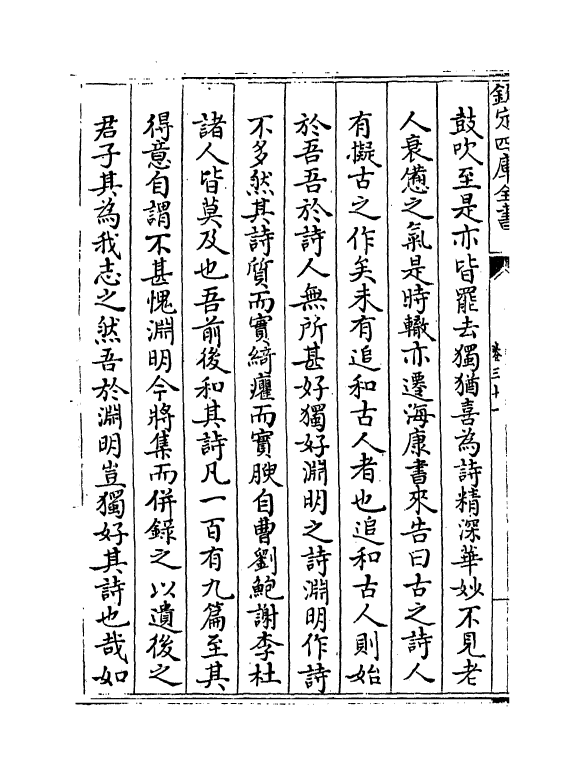 欽定四庫全書
卷三十一
鼓吹至是亦皆罷去獨猶喜為詩精深華妙不見老
人衰憊之氣是時轍亦遷海康書來告曰古之詩人
有擬古之作矣未有追和古人者也追和古人則始
於吾吾於詩人無所甚好獨好淵明之詩淵明作詩
不多然其詩質而實綺癯而實腴自曹劉鮑謝李杜
諸人皆莫及也吾前後和其詩凡一百有九篇至其
得意自謂不甚愧淵明今將集而併錄之以遺後之
君子其為我志之然吾於淵明豈獨好其詩也哉如